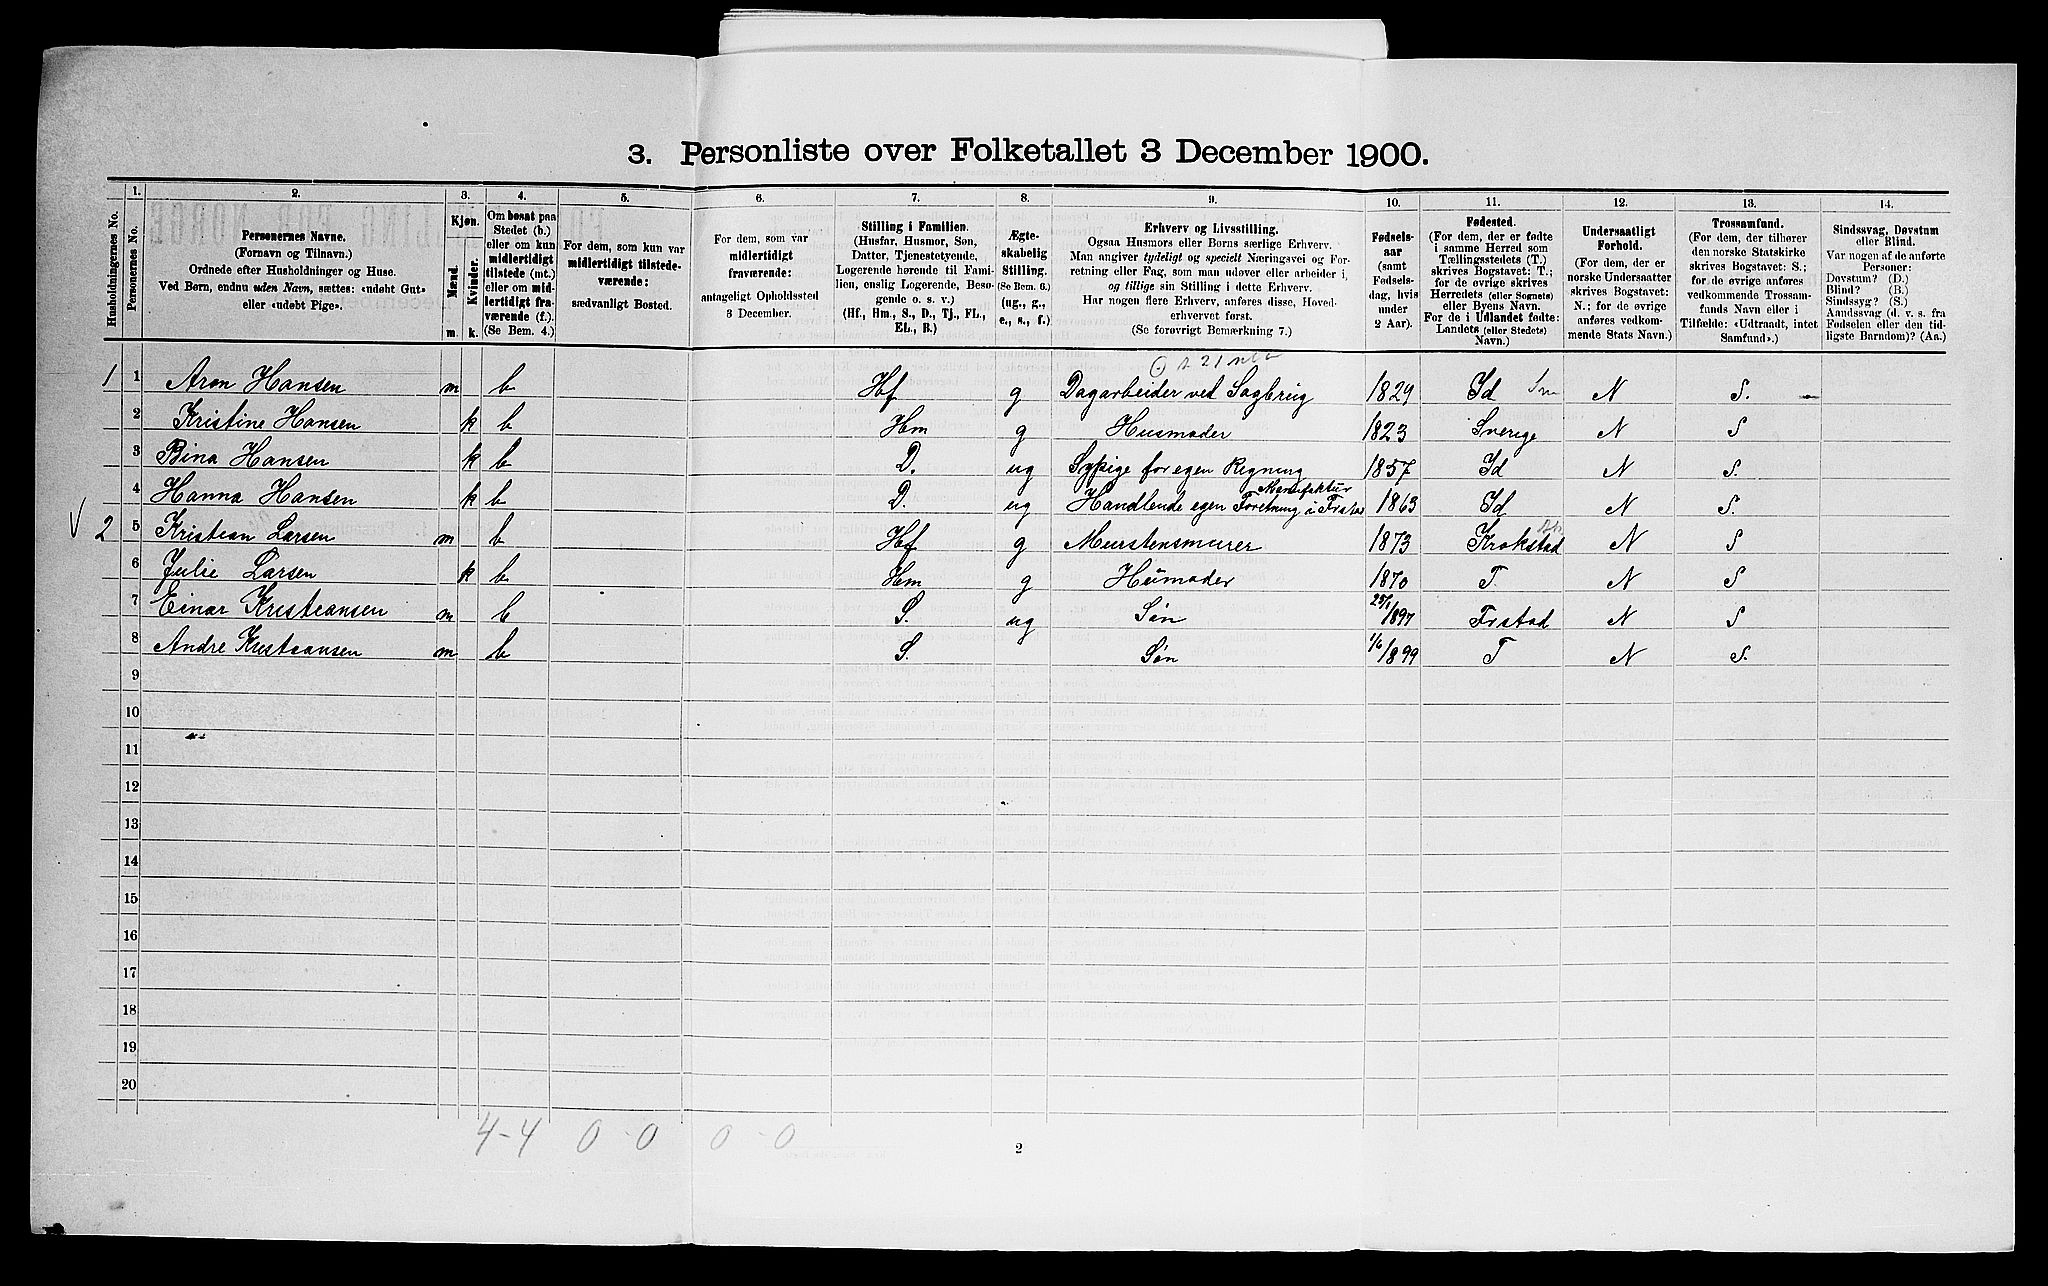 3. Personliste over Folketallet 3 December 1900.
Husholdningernes No.
1.
Personernes No.
2.
Personernes Navne.
(Fornavn og Tilnavn.)
Ordnede efter Husholdninger og Huse.
Ved Børn, endnu uden Navn, sættes: «udøbt Gut»
eller «udøbt Pige».
3.
Kjøn.
Mænd.
Kvinder.
m.
k.
4.
Om bosat paa
Stedet (b.)
eller om kun
midlertidigt
tilstede (mt.)
eller om mid-
lertidigt fra-
værende (f.)
(Se Bem. 4.)
5.
For dem, som kun var
midlertidigt tilstede-
værende:
sædvanligt Bosted.
6.
For dem, som var
midlertidigt
fraværende:
antageligt Opholdssted
3 December.
7.
Stilling i Familien.
(Husfar, Husmor, Søn,
Datter, Tjenestetyende,
Logerende hørende til Fami-
lien, enslig Logerende, Besø-
gende o. s. v.)
(Hf., Hm., S., D., Tj., FL.,
EL., B.)
8.
Ægte-
skabelig
Stilling.
(Se Bem. 6.)
(ug., g.,
e., s., f.)
9.
Erhverv og Livsstilling.
Ogsaa Husmors eller Børns særlige Erhverv.
Man angiver tydeligt og specielt Næringsvei og For-
retning eller Fag, som man udøver eller arbeider i,
og tillige sin Stilling i dette Erhverv.
Har nogen flere Erhverv, anføres disse, Hoved-
erhvervet først.
(Se forøvrigt Bemærkning 7.)
10.
Fødsels-
aar
(samt
Fødsels-
dag, hvis
under
2 Aar).
11.
Fødested.
(For dem, der er fødte
i samme Herred som
Tællingsstedets (T.)
skrives Bogstavet: T.;
for de øvrige skrives
Herredets (eller Sognets)
eller Byens Navn.
For de i Udlandet fødte:
Landets (eller Stedets)
Navn.)
12.
Undersaatligt
Forhold.
(For dem, der er
norske Undersaatter
skrives Bogstavet:
N.; for de øvrige
anføres vedkom-
mende Stats Navn.)
13.
Trossamfund.
(For dem, der tilhører
den norske Statskirke
skrives Bogstavet: S.;
for de øvrige anføres
vedkommende Trossam-
funds Navn eller i
Tilfælde: «Udtraadt, intet
Samfund».)
14.
Sindssvag, Døvstum
eller Blind.
Var nogen af de anførte
Personer:
Døvstum? (D.)
Blind? (B.)
Sindssyg? (S.)
Aandssvag (d. v. s. fra
Fødselen eller den tid-
ligste Barndom)? (Aa.)
1 1 Aron Hansen m b Hf g Dagarbeider ved Sagbrug 1829 Id N S.
2 Kristine Hansen k b Hm g Husmoder 1823 Sverige N S
3 Bina Hansen k b D. ug Sypige for egen Regning 1857 Id N S.
Manufaktur
4 Hanna Hansen k b D. ug Handlende egen Foretning i Frstad 1863 Id N S.
V 2 5 Kristian Larsen m b Hf g Murstensmurer 1873 Krokstad N S
6 Julie Larsen k b Hm g Husmoder 1870 T. N S
7 Einar Kristiansen m b S. ug Søn 25/1 1897 Frstad N S
8 Andre Kristiansen m b S. Søn 1/6 1899 T N S.
9
10
11
12
13
14
15
16
17
18
19
20
4-4 0-0 0-0
2